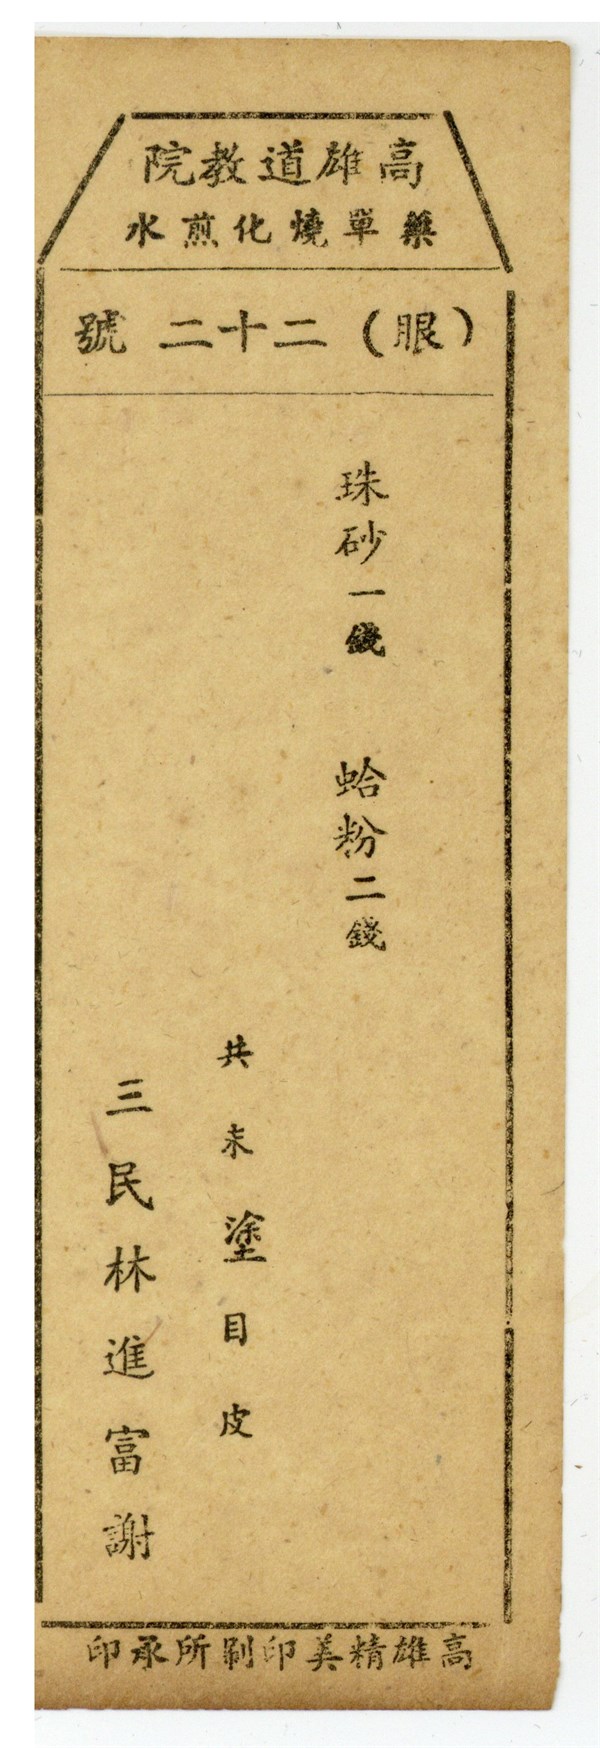 高雄道教院
藥單燒化煎水
（眼）二十二 號
珠砂一錢 蛤粉二錢
共末塗目皮
三民林進富謝
高雄精美印刷所承印